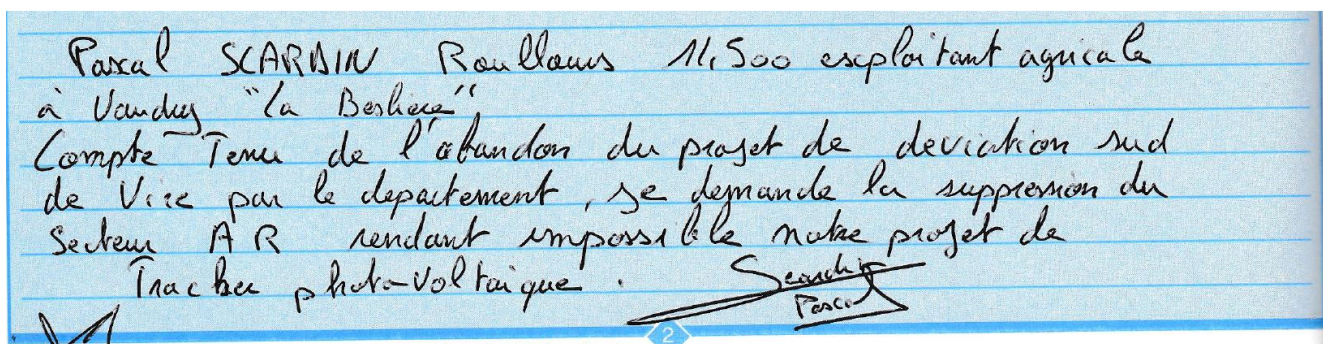 Pascal SCARDIN Roullours 14500 exploitant agricole
à Vaudry "la Beslière"
Compte Tenu de l'abandon du projet de deviation sud
de Vire par le departement, je demande la suppression du
Secteur AR rendant impossible notre projet de
Tracker photo-voltaique.
Pascal
2